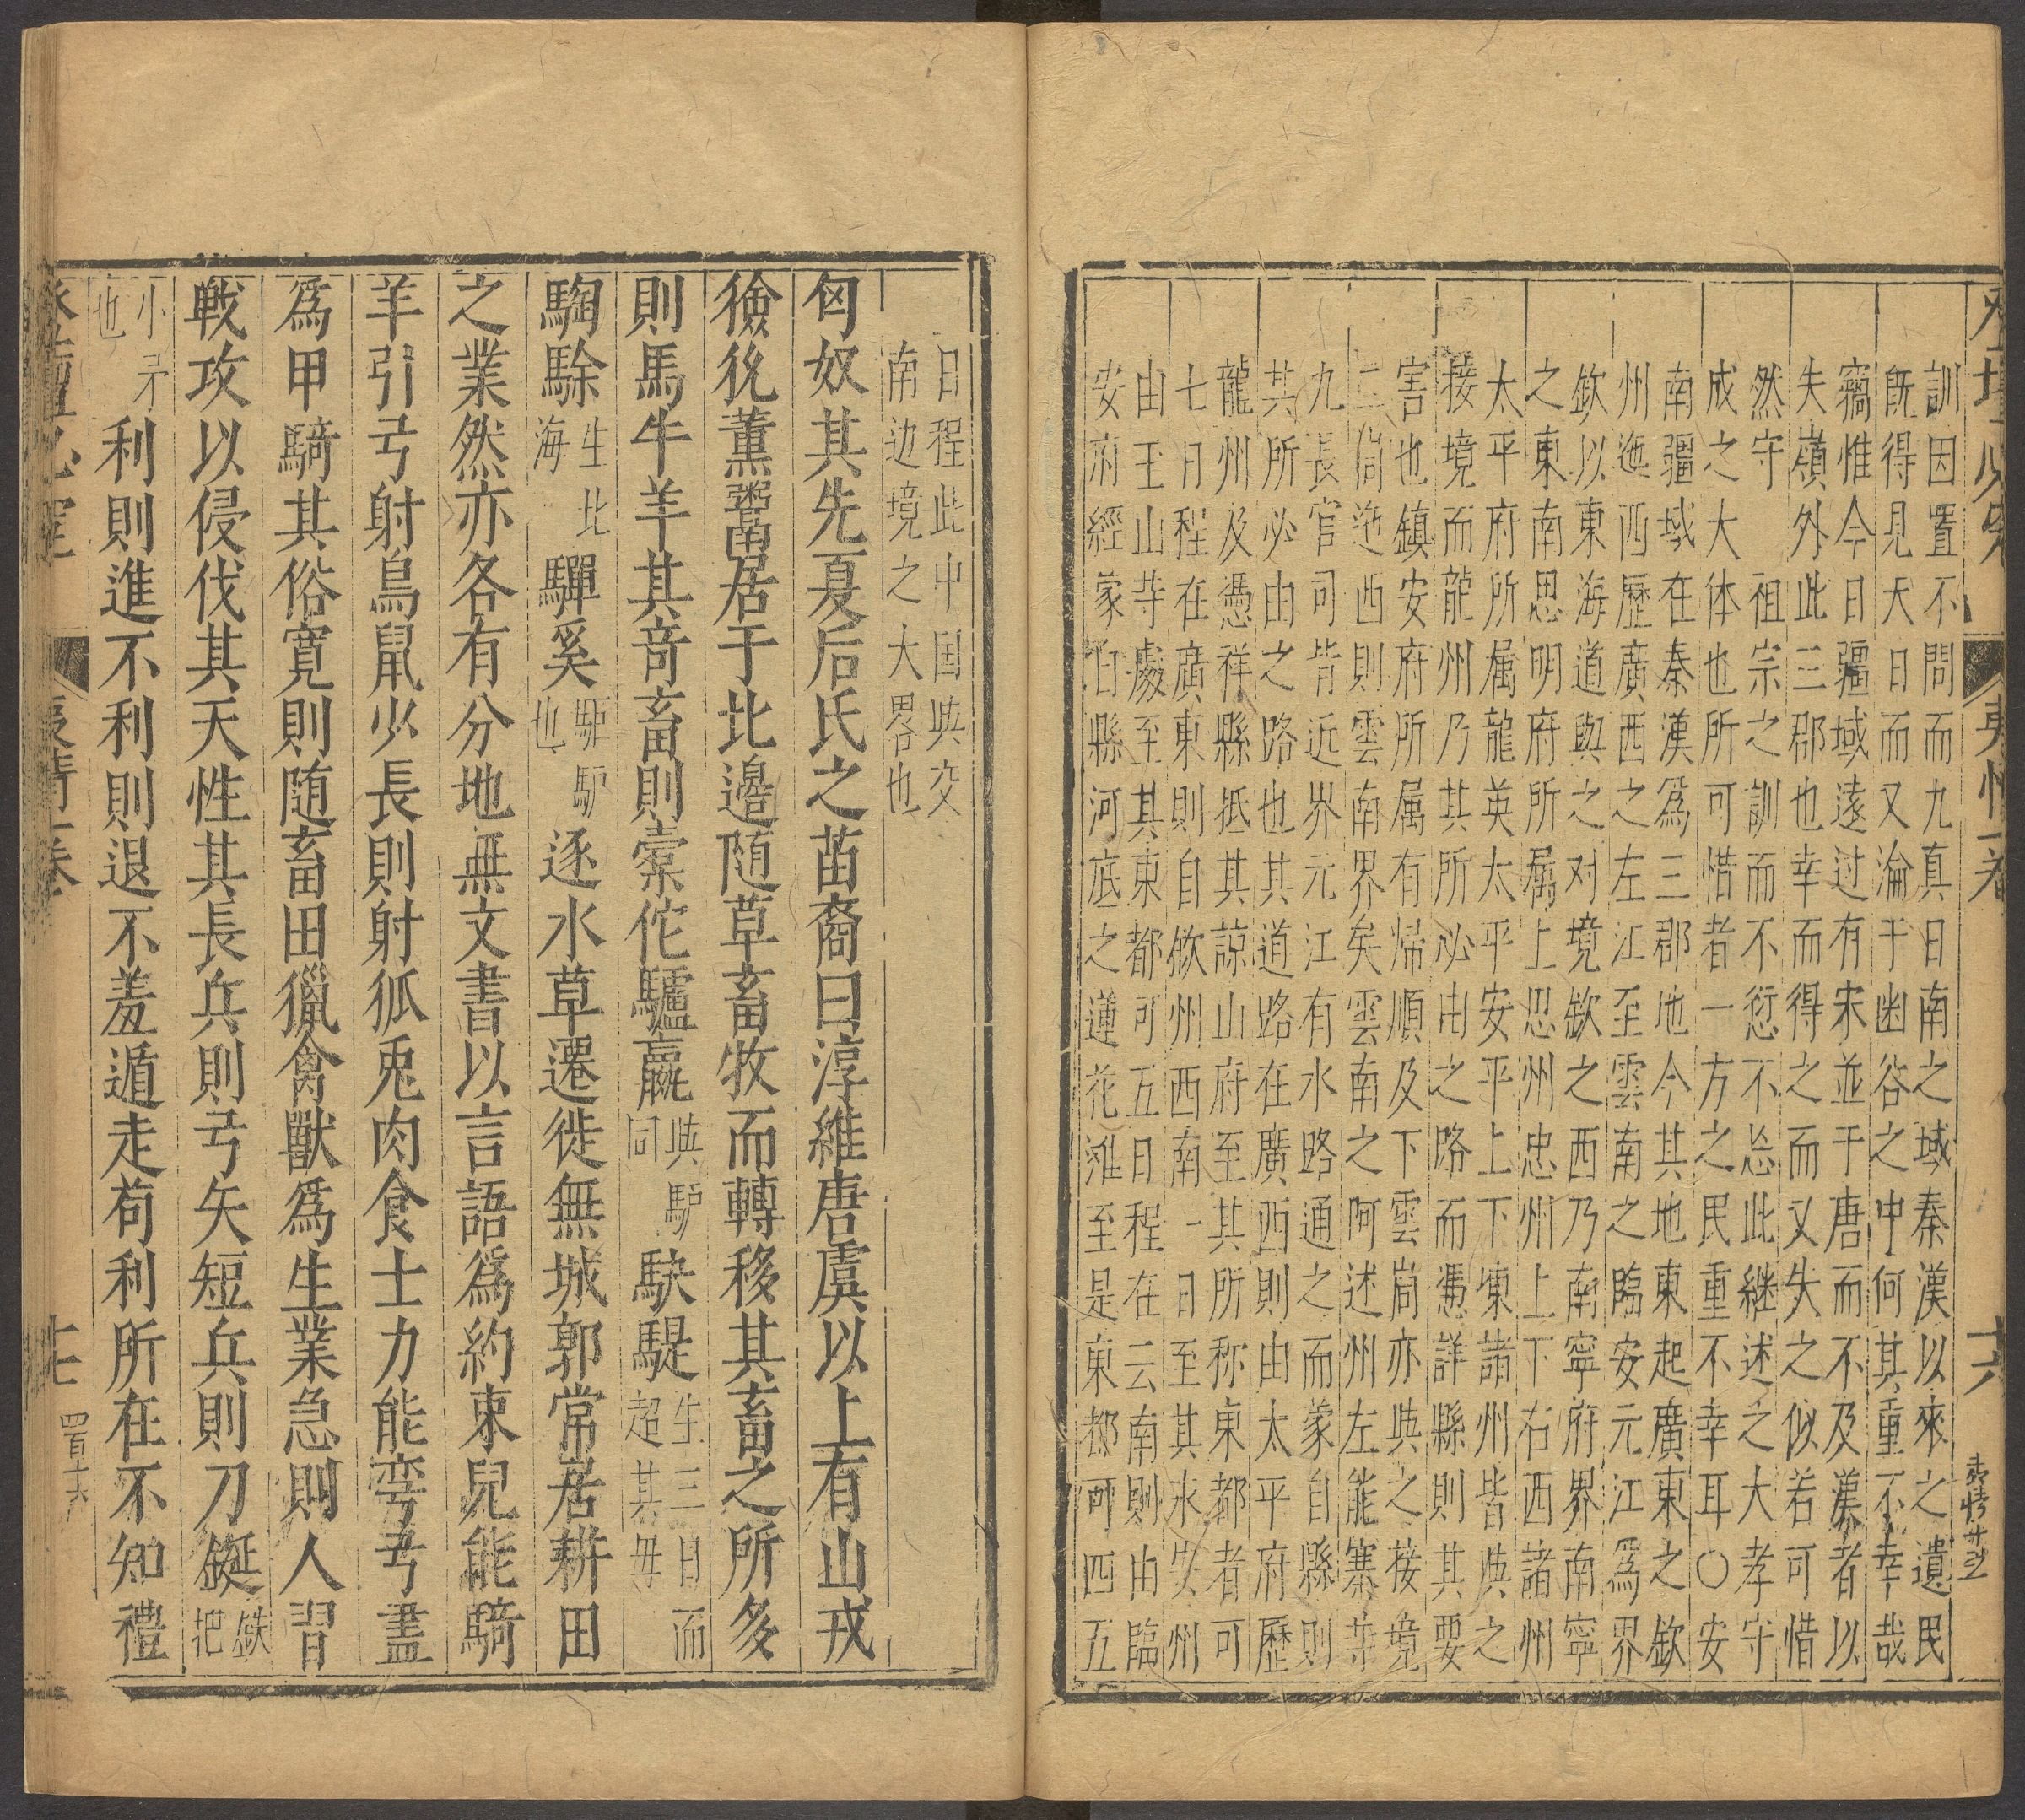 訓因置不問而九真日南之域秦漢以來之遺民
旣得見天日而又淪于幽谷之中何其重不幸哉
竊惟今日疆域遠过有宋並于唐而不及漢者以
失嶺外此三郡也幸而得之而又失之似若可惜
然守祖宗之訓而不愆不忘此継述之大孝守
成之大体也所可惜者一方之民重不幸耳○安
南疆域在秦漢爲三郡地今其地東起廣東之欽
州迤西歷廣西之左江至雲南之臨安元江爲界
欽以東海道與之对境欽之西乃南寧府界南寧
之東南思明府所属上思州忠州上下石西諸州
太平府所属龍英太平安平上下凍諸州皆與之
接境而龍州乃其所必由之路而憑詳縣則其要
害也鎮安府所属有帰順及下雷峝亦與之接境
二峝迤西則雲南界矣雲南之阿迷州左能寨等
九長官司皆近界元江有水路通之而蒙自縣則
其所必由之路也其道路在廣西則由太平府歷
龍州及憑祥縣抵其諒山府至其所称東都者可
七日程在廣東則自欽州西南一日至其永安州
由玉山等處至其東都可五日程在云南則由臨
安府經蒙自縣河底之蓮花灘至是東都可四五
夷情一卷
十六
日程此中国與交
南边境之大畧也
匈奴其先夏后氏之苗裔曰淳維唐虞以上有山戎
獫狁薰鬻居于北邊随草畜牧而轉移其畜之所多
則馬牛羊其竒畜則橐佗驢驘與馿同駃騠生三日而超其毋
騊駼生北海驒奚駏馿也逐水草遷徙無城郭常居耕田
之業然亦各有分地無文書以言語爲約束兒能騎
羊引弓射鳥鼠少長則射狐兎肉食士力能弯弓盡
爲甲騎其俗寛則随畜田獵禽獸爲生業急則人習
戦攻以侵伐其天性其長兵則弓矢短兵則刀鋋鉄把
小矛也利則進不利則退不羞遁走苟利所在不知禮
十七